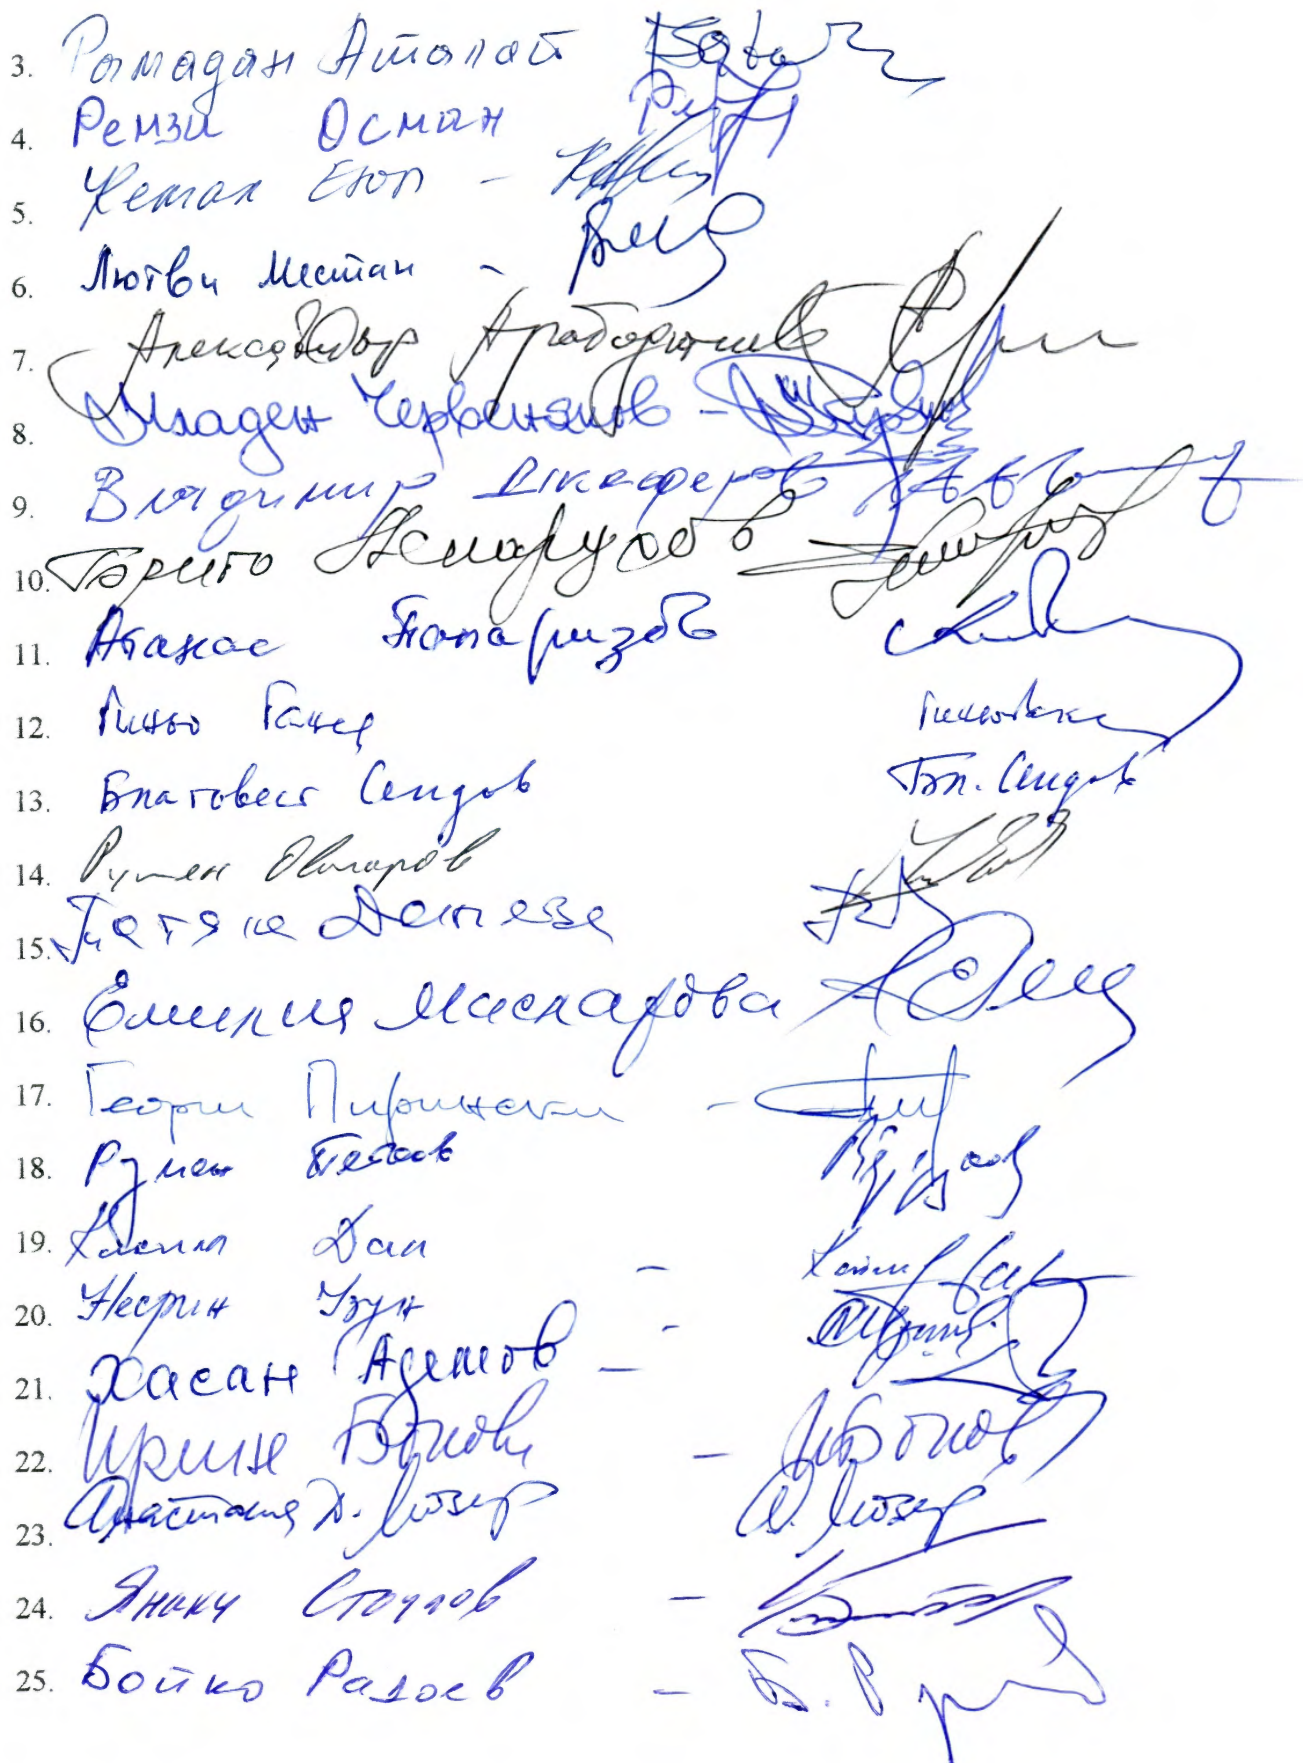 3. Рамадан Аталай
4. Ремзи Осман
5. Кемал Еюп -
6. Лютви Местан -
7. Александър Арабаджиев
8. Младен Червеняков -
9. Владимир Джаферов
10. Борис
11. Атанас Папаризов
12. Гиньо Ганев
13. Благовест Сендов Бл. Сендов
14. Румен Овчаров
15. Татяна Дончева
16. Емилия Масларова
17. Георги Пирински -
18. Румен Петков
19. Касим Дал -
20. Несрин Узун -
21. Хасан Адемов -
22. Ирина Бокова -
23. Анастасия Д. Мозер А. Мозер
24. Янаки Стоилов -
25. Бойко Радоев - Б. Р